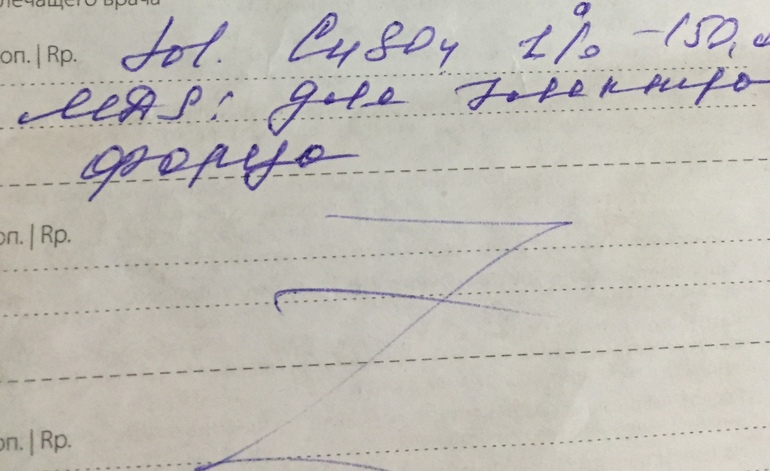 лечащего врача
оп. | Rp. Sol. CuSO4 1% - 150,
MDS: для электро
фореза
оп. | Rp.
оп. | Rp.